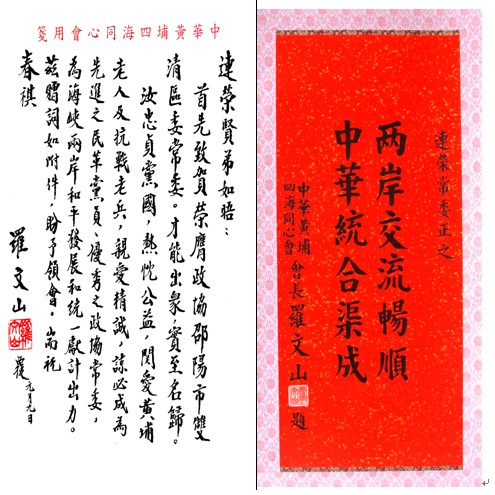 中華黃埔四海同心會用箋
連榮賢弟如晤：
首先致賀榮膺政協邵陽市雙
清區委常委。才能出衆，實至名歸。
汝忠貞黨國，熱忱公益，関愛黃埔
老人及抗戰老兵，親愛精誠，諒必成為
先進之民革黨員、優秀之政協常委，
為海峽兩岸和平發展和統一獻計出力。
茲贈詞如附件，盼予領會。耑祝
春祺
羅文山
元月九日
連榮常委正之
两岸交流暢順
中華統合渠成
中華黃埔
四海同心會
會長羅文山題